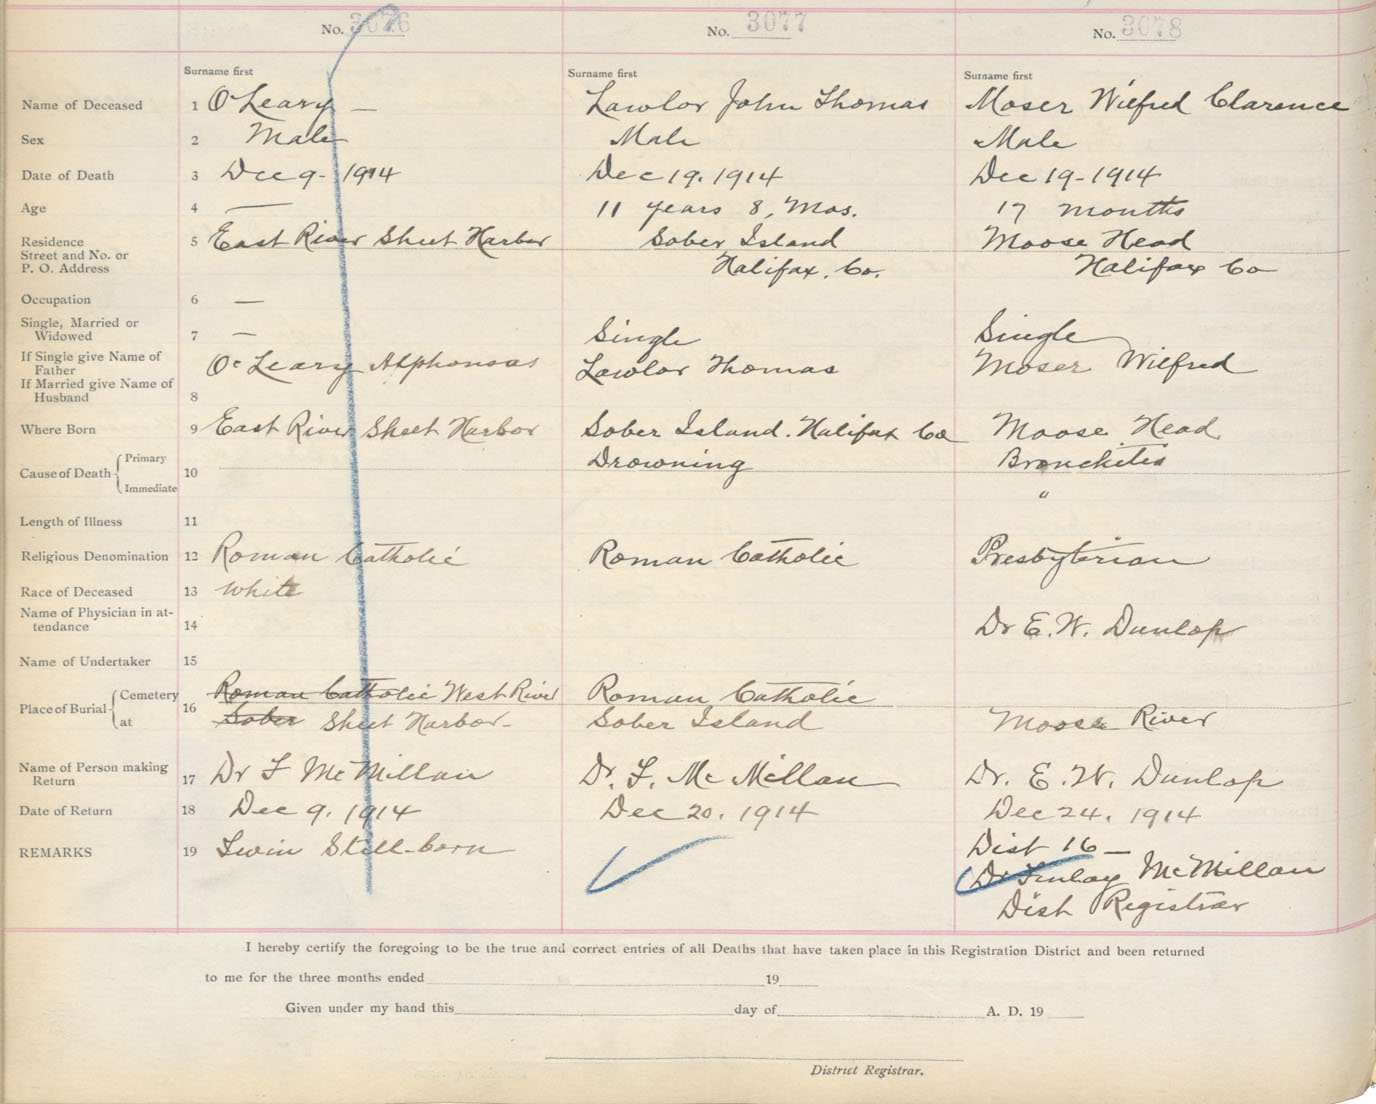 No. 3076
No. 3077
No. 3078
Surname first
Surname first
Surname first
Name of Deceased 1 O'Leary — Lawlor John Thomas Moser Wilfred Clarence
Sex 2 Male Male Male
Date of Death 3 Dec 9- 1914 Dec 19. 1914 Dec 19- 1914
Age 4 — 11 years 8, Mos. 17 months
Residence 5 East River Sheet Harbor Sober Island Moose Head
Street and No. or
P. O. Address Halifax. Co. Halifax Co
Occupation 6 —
Single, Married or
Widowed 7 — Single Single
If Single give Name of
Father O'Leary Alphonsas Lawlor Thomas Moser Wilfred
If Married give Name of
Husband 8
Where Born 9 East River Sheet Harbor Sober Island. Halifax Co Moose Head
Cause of Death Primary 10 Drowning Bronchitis
Immediate "
Length of Illness 11
Religious Denomination 12 Roman Catholic Roman Catholic Presbyterian
Race of Deceased 13 White
Name of Physician in at-
tendance 14 Dr E. W. Dunlop
Name of Undertaker 15
Place of Burial Cemetery 16 Roman Catholic West River Roman Catholic
at Sober Sheet Harbor- Sober Island Moose River
Name of Person making
Return 17 Dr F McMillan Dr. F. McMillan Dr. E. W. Dunlop
Date of Return 18 Dec 9. 1914 Dec 20. 1914 Dec 24. 1914
REMARKS 19 Twin Still-born Dist 16—
Dr Finlay McMillan
Dist Registrar
I hereby certify the foregoing to be the true and correct entries of all Deaths that have taken place in this Registration District and been returned
to me for the three months ended 19
Given under my hand this day of A. D. 19
District Registrar.